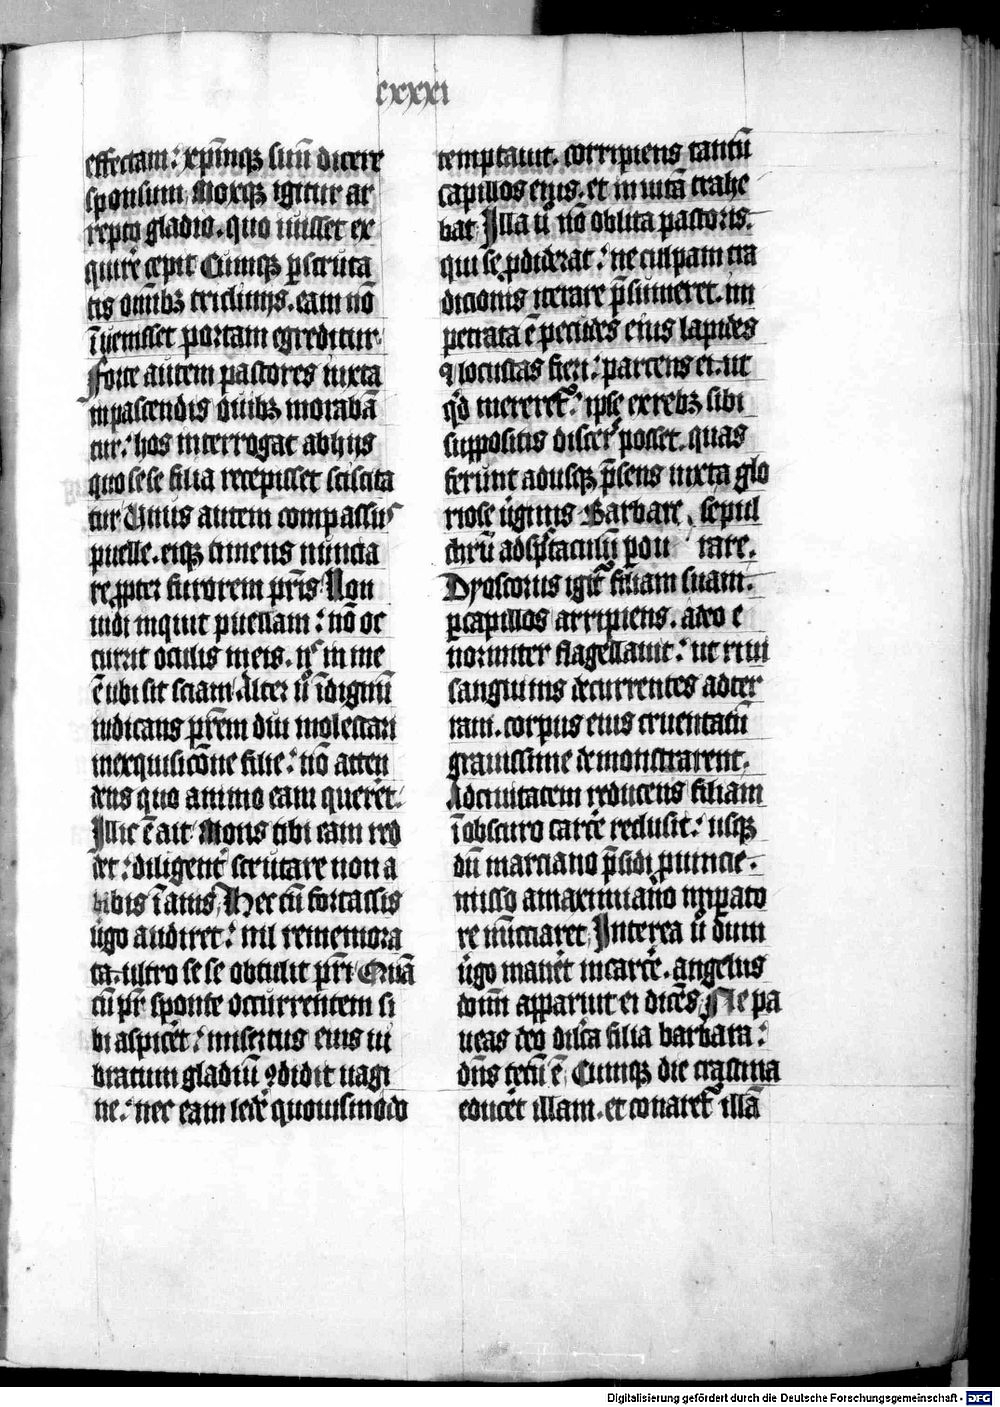 cxxxi
effectam: xp̄mqꝫ suū dicere
sponsum Moxqꝫ igitur ar
repto gladio. quo iuisset ex
quire cepit Cumqꝫ ꝑscruta
tis om̄ibꝫ tricliniis. eam nō
īuenisset portam egreditur.
Forte autem pastores iuxta
in pascendis ouibꝫ morabā
tur: hos interrogat ab hiis
quo sese filia recepisset sciscita
tur Unus autem compassus
puelle. eiqꝫ timens nuncia
re ꝓpter furorem pr̄is Non
uidi inquit puellam: nō oc
currit oculis meis. nͨ in me
ē ubi sit sciam Alter ū īdignū
iudicans pr̄em diu molestari
in exquisicōne filie: nō atten
dens quo animo eam querēt.
Illic ē ait Mons tibi eam red
det: diligent᷑ scrutare non a
bibis īanis, Hec cū fortassis
ūgo audiret: nil rememora
ta. ultro se se obtulit pr̄i Quā
cū pr̄ sponte occurrentem si
bi aspicēt: misertus eius ui
bratum gladiū ꝯdidit uagi
ne: nec eam ledē quouismodo
temptauit. corripiens tantū
capillos eius. et inuitā trahe
bat Illa ū nō oblita pastoris.
qui se ꝓdiderat: ne culpam tra
dicionis iterare p̄sumeret. im
petrata ē pecudes eius lapides
⁊ locustas fieri: parcens ei. ut
qd̄ mereret᷑: ipse ex rebꝫ sibi
suppositis discer̄ posset. quas
ferunt adusqꝫ p̄sens iuxta glo
riose ūginis Barbare, sepul
chrū ad sp̄taculū ꝑdurare.
Dyoscorus igit᷑ filiam suam.
ꝑ capillos arripiens. adeo e
normiter flagellauit: ut riui
sanguinis decurrentes ad ter
ram. corpus eius cruentatū
grauissime demonstrarent.
Ad ciuitatem reducens filiam
ī obscuro carcē reclusit: usqꝫ
dū marciano p̄sidi ꝓuincie.
misso a maximiano imꝑato
re nūciaret Interea ū dum
ūgo manēt in carcē. angelus
domī apparuit ei dicēs Ne pa
ueas deo dilc̄a filia barbara:
dn̄s tecū ē Cumqꝫ die crastina
educēt illam. et conaret᷑ illā
Digitalisierung gefördert durch die Deutsche Forschungsgemeinschaft - DFG